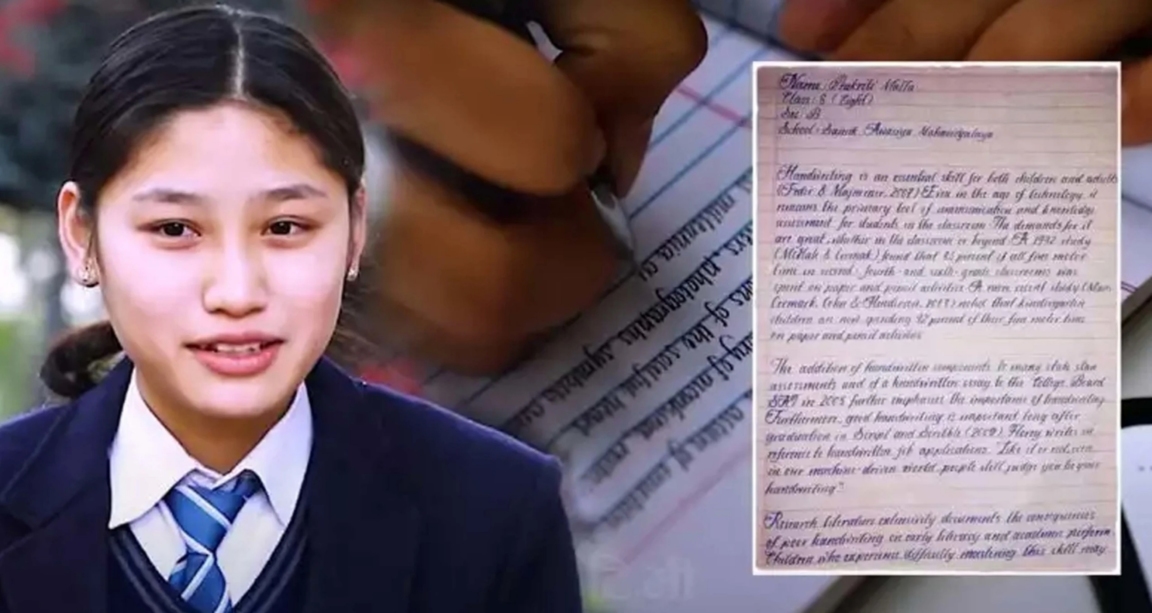 Name: Prakriti Malla
Class: 8 (Eight)
Sec: B
School: Sainik Awasiya Mahavidyalaya
Handwriting is an essential skill for both children and adults
(Feder & Majnemer, 2007) Even in the age of technology, it
remains the primary tool of communication and knowledge
assessment for students in the classroom The demands for it
are great, whether in the classroom or beyond A 1992 study
(McHale & Cermak) found that 85 percent of all fine motor
time in second- fourth- and sixth- grade classrooms was
spent on paper and pencil activities A more recent study (Marr,
Cermack, Cohn & Henderson, 2003) noted that kindergarten
children are now spending 42 percent of their fine motor time
on paper and pencil activities
The addition of handwritten components to many state
assessments and of a handwritten essay to the College Board
SAT in 2005 further emphasize the importance of handwriting
Furthermore, good handwriting is important long after
graduation in Script and Scribble (2009) Florey writes in
reference to handwritten job applications, "Like it or not, even
in our machine-driven world, people still judge you by your
handwriting"
Research literature extensively documents the consequences
of poor handwriting on early literacy and academic perform
Children who experience difficulty mastering this skill may
millennia
photographs, symbols
of the